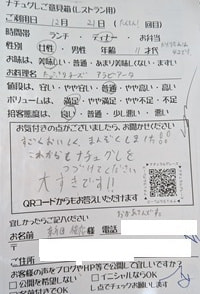 ナチュグルご意見箱(レストラン用)
ご利用日 12月 21日
時間帯 ランチ・ディナー お弁当
性別 女性 男性 年齢 11才代
お味は、美味しい・普通・あまり美味しくない・まずい
お料理名
値段は、安い・やや安い・普通・やや高い・高い
ボリュームは、満足・やや満足・やや不足・不足
接客態度は、良い・普通・少し悪い・悪い
お気付きの点がございましたら、お聞かせください
すごくおいしく、まんぞくしました!!
これからもナチュグルを
つづけてください
大すきです!!
QRコードからもお答えいただけます
宜しかったらご記入ください
お名前 様 電話
ご住所
お客様の声をブログやHP等で公開して宜しいですか?
公開を希望しない
イニシャルならOK
名前付きでOK
レ点でチェックお願いします